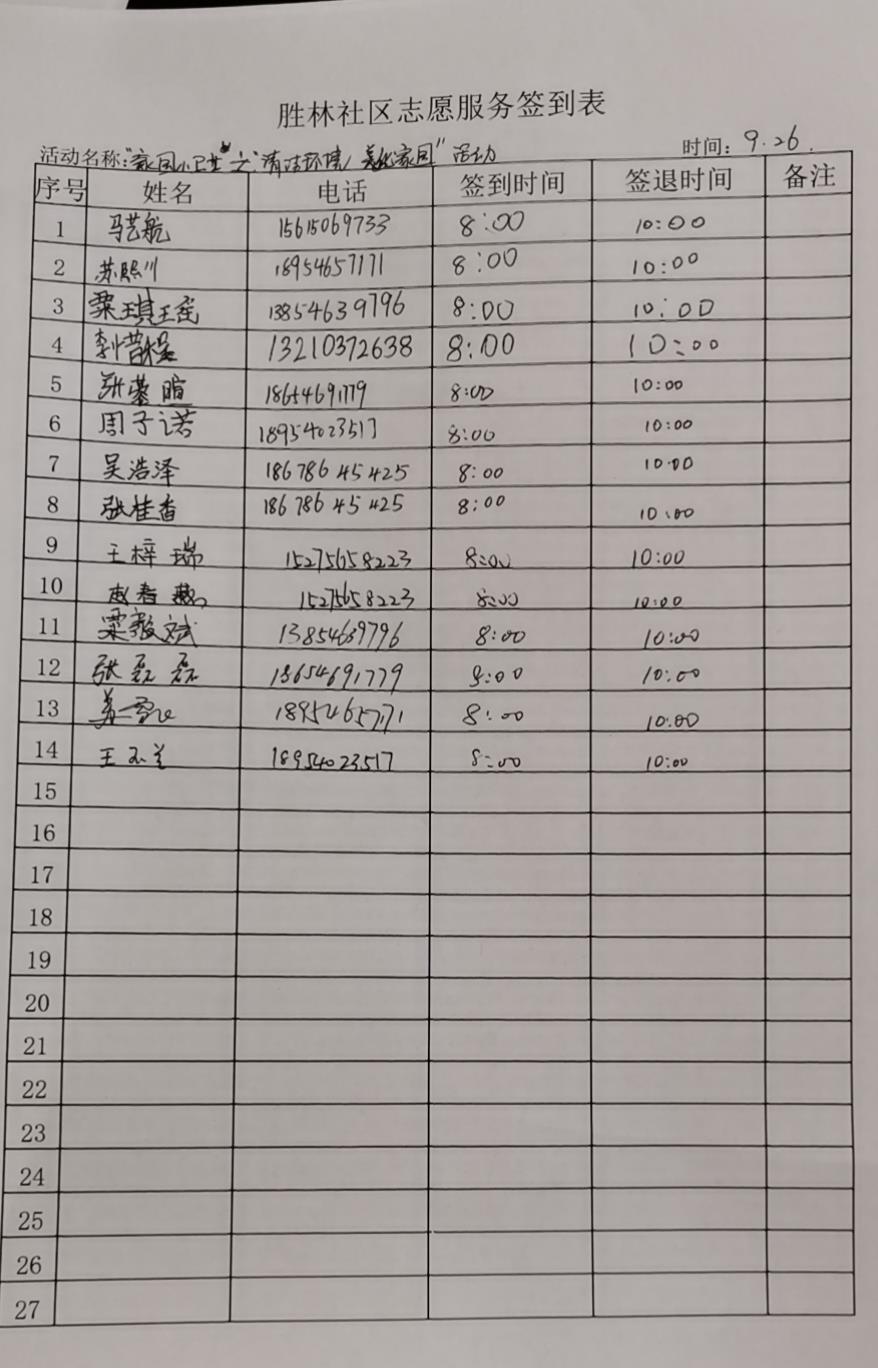 胜林社区志愿服务签到表
活动名称:"家园小卫士"之"清洁环境,美化家园"活动 时间: 9.26.
序号 姓名 电话 签到时间 签退时间 备注
1 马艺航 15615069733 8:00 10:00
2 苏熙川 18954657171 8:00 10:00
3 粟琪瑶 13854639796 8:00 10:00
4 13210372638 8:00 10:00
5 张蓁暄 18654691779 8:00 10:00
6 周子诺 18954023517 8:00 10:00
7 吴浩泽 18678645425 8:00 10:00
8 张桂香 18678645425 8:00 10:00
9 王梓瑞 15275658223 8:00 10:00
10 15275658223 8:00 10:00
11 粟毅斌 13854639796 8:00 10:00
12 张磊磊 18654691779 8:00 10:00
13 18954657171 8:00 10:00
14 王玉兰 18954023517 8:00 10:00
15
16
17
18
19
20
21
22
23
24
25
26
27